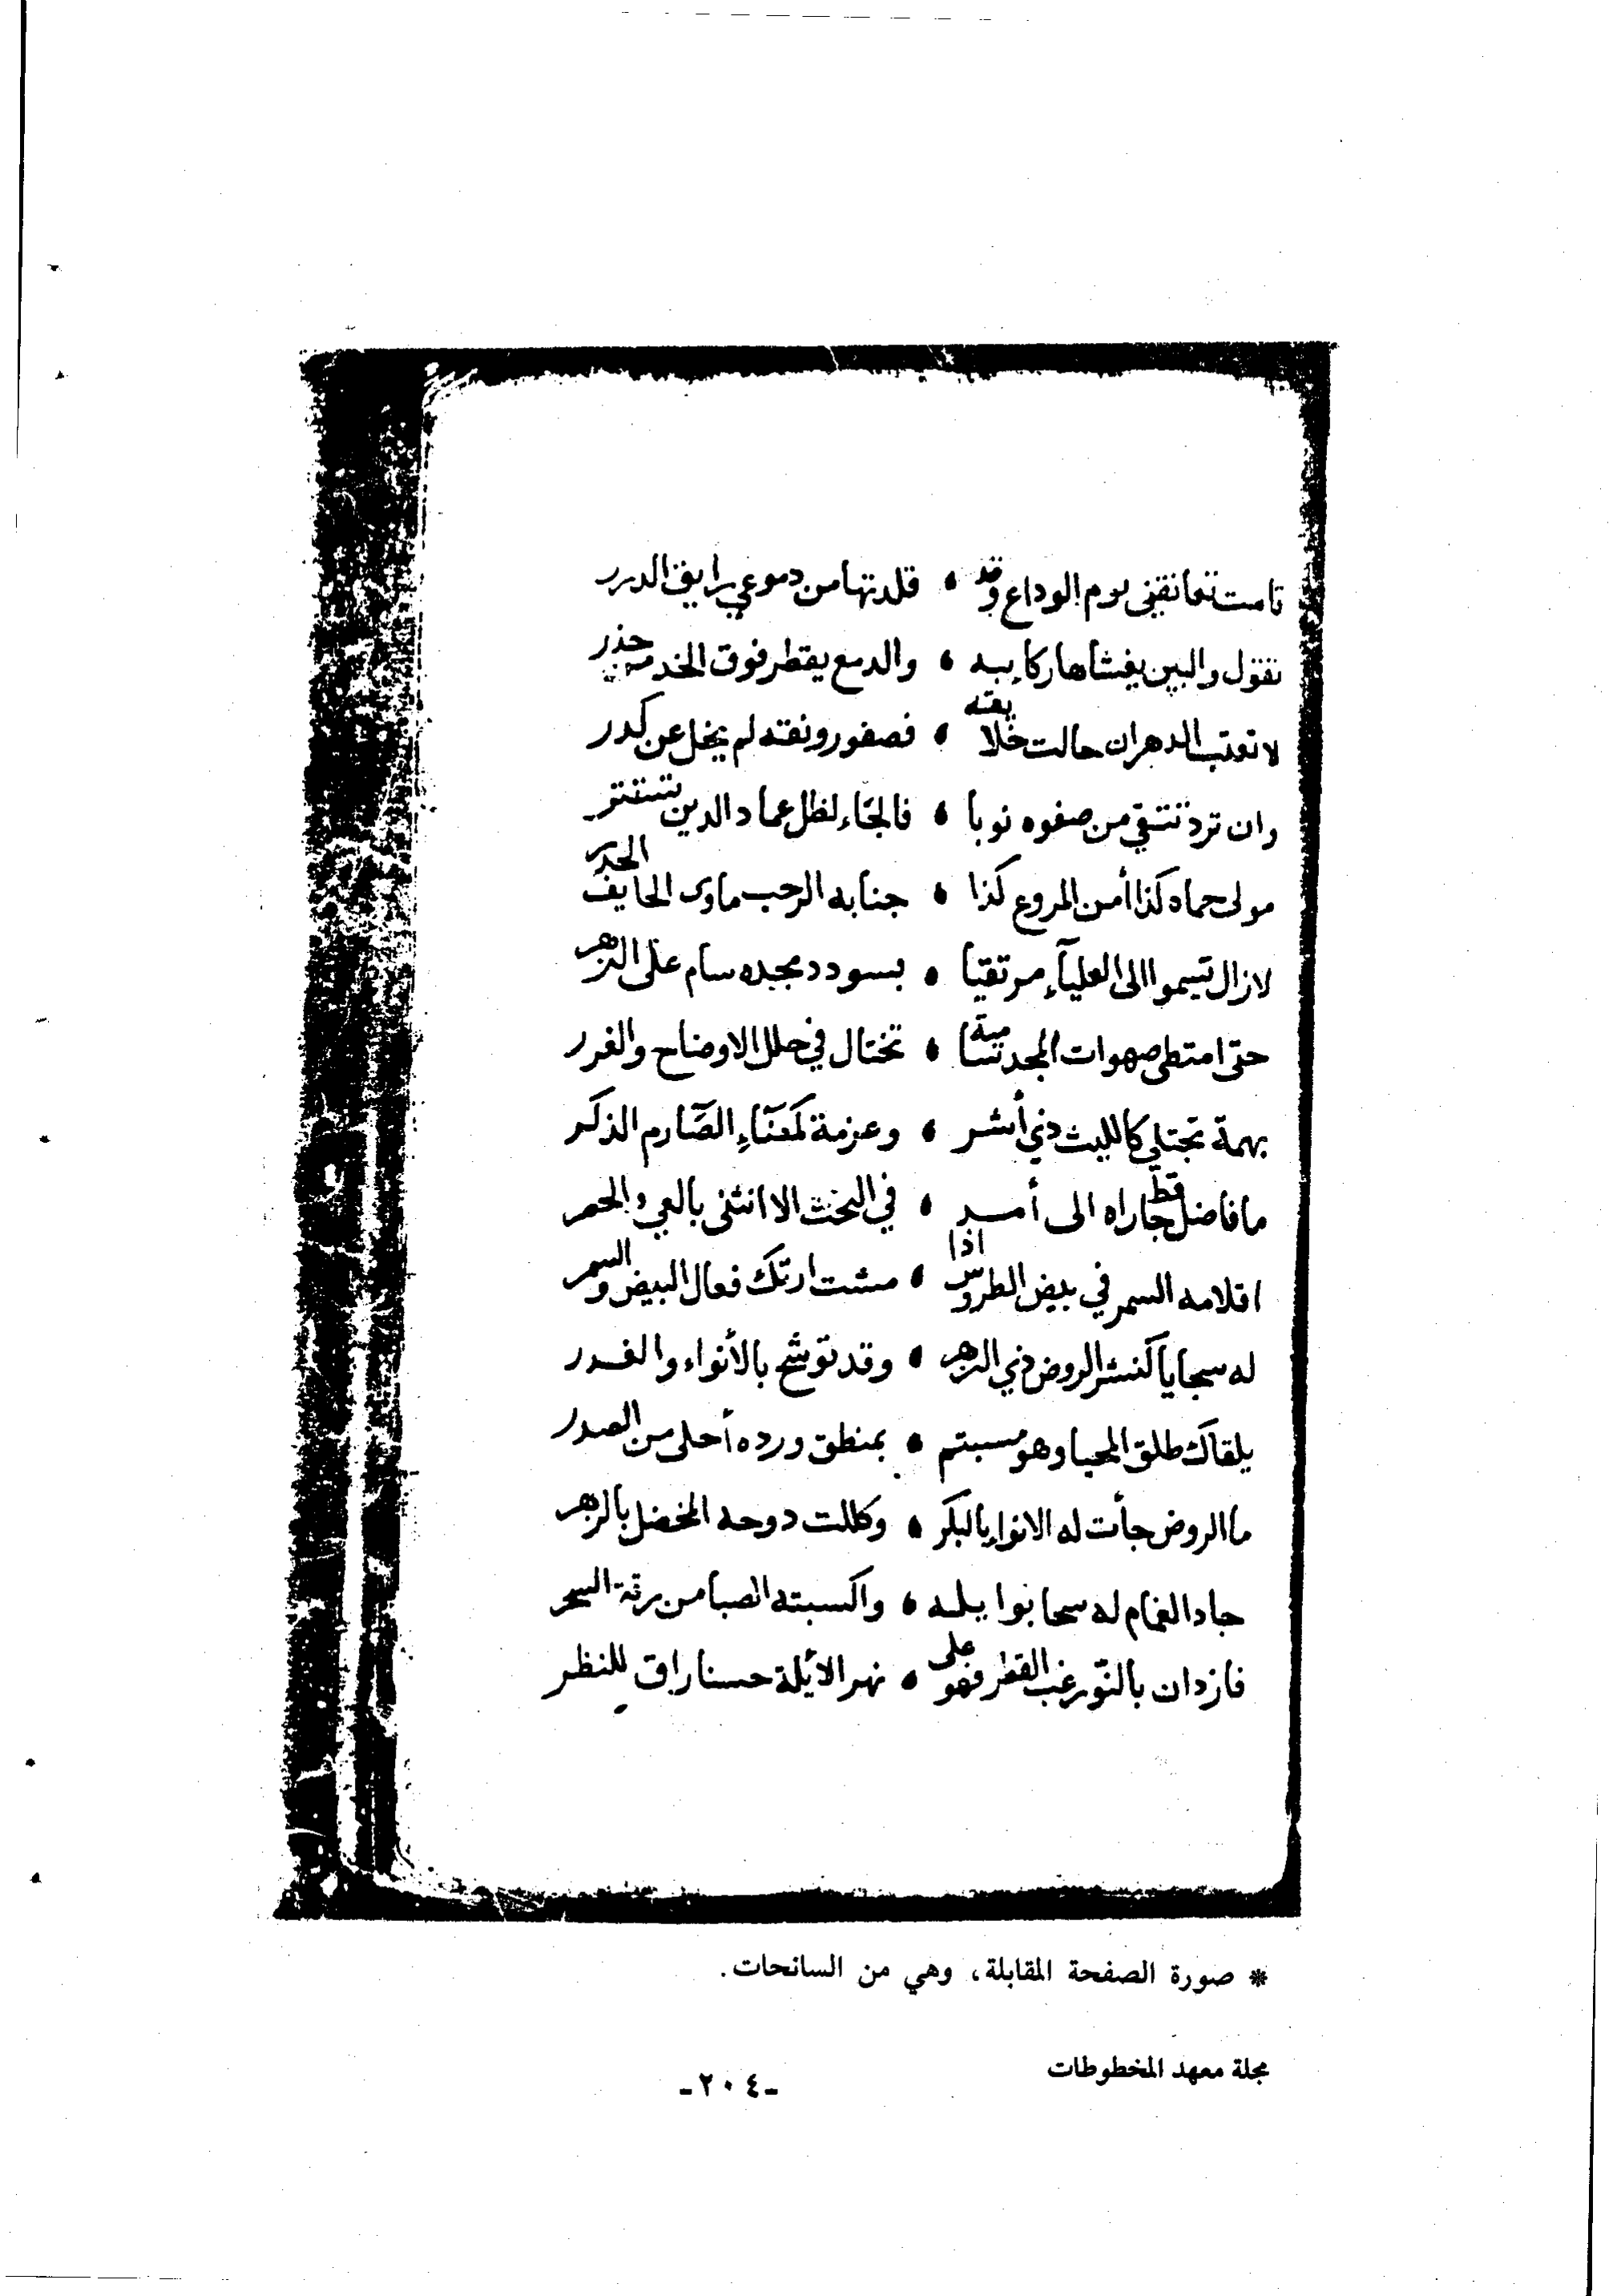 قامت تعانقني يوم الوداع وقد ، قلدتها من دموعي رايق الدرر
تقول والبين يغشاها ركايبه ، والدمع يقطر فوق الخد من حذر
لا تعتب الدهر ان حالت خلايقه ، فصفو رونقه لم يخل عن كدر
وان ترد تنتقي من صفوه نوبا ، فالجاء لظل عماد الدين تستتر
مولى حماه كذا أمن المروع كذا ، جنابه الرحب ماوى الخايف الحذر
لازال يسموا الى العليآء مرتقيا ، بسودد مجده سام على الزهر
حتى امتطى صهوات المجد سامية ، تختال في حلل الاوضاح والغرر
بهمة تجتلي كالليث ذي أشر ، وعزمة كمضآء الصّارم الذكر
ما فاضل قط جاراه الى أمد ، في البحث الا انثنى بالعي والحصر
اقلامه السمر في بيض الطروس اذا ، مشت ارتك فعال البيض والسمر
له سجايا كنشر الروض ذي الزهر ، وقد توشح بالأنواء والغدر
يلقاك طلق المحيا وهو مبتسم ، بمنطق ورده أحلى من الصدر
ما الروض جأت له الانواء بالبكر ، وكللت دوحه المخضل بالزهر
جاد الغمام له سحا بوابله ، واكسبته الصبا من رقة السحر
فازدان بالنّور غب القطر فهو على ، نهر الأبلة حسنا راق للنظر
* صورة الصفحة المقابلة، وهي من السانحات.
مجلة معهد المخطوطات
-٢٠٤-